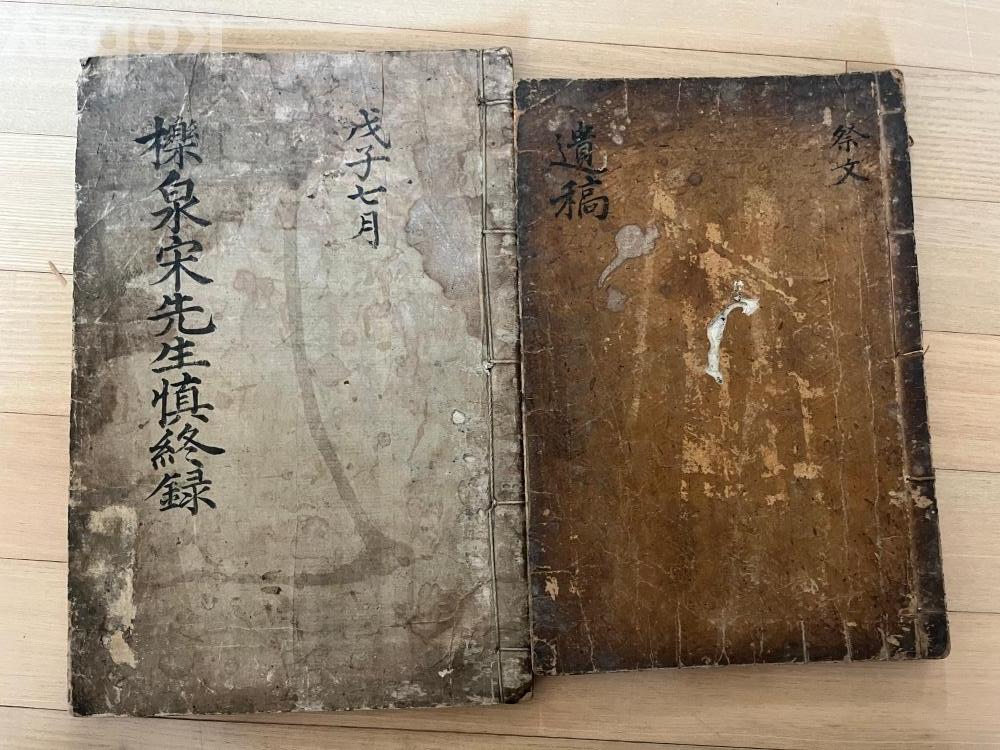 戊子七月
櫟泉宋先生慎終録
祭文
遺稿